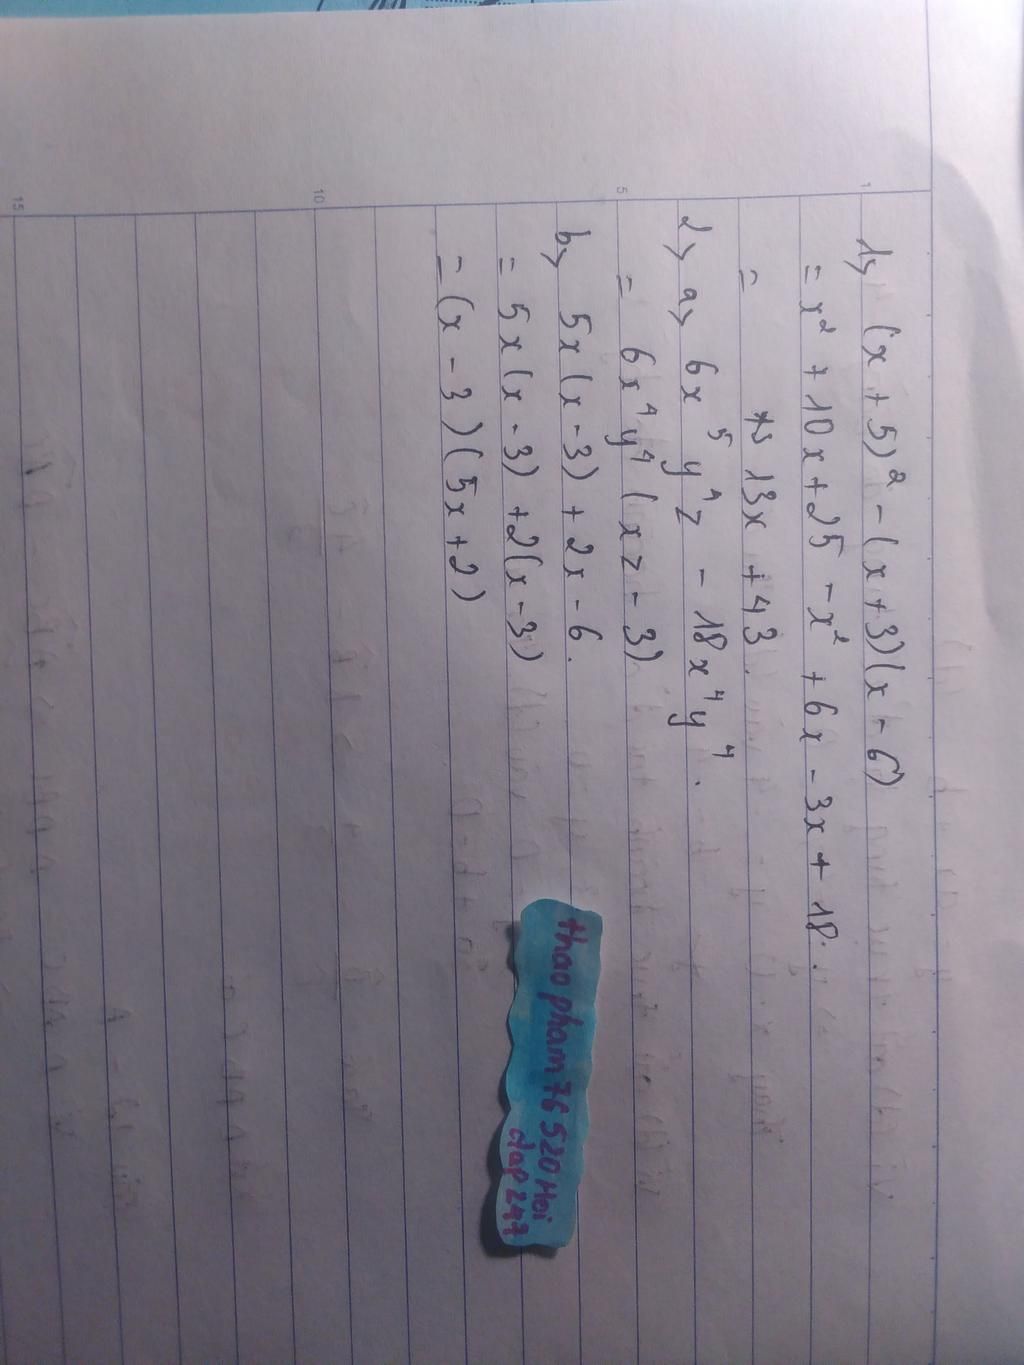 1, (x + 5)² - (x + 3)(x - 6)
= x² + 10x + 25 - x² + 6x - 3x + 18.
= 13x + 43.
2, a, 6x⁵y⁴z - 18x⁴y⁴.
= 6x⁴y⁴(xz - 3)
b, 5x(x - 3) + 2x - 6.
= 5x(x - 3) + 2(x - 3)
= (x - 3)(5x + 2)
thao pham 76 520 Hoi
dap 247
1
5
10
15